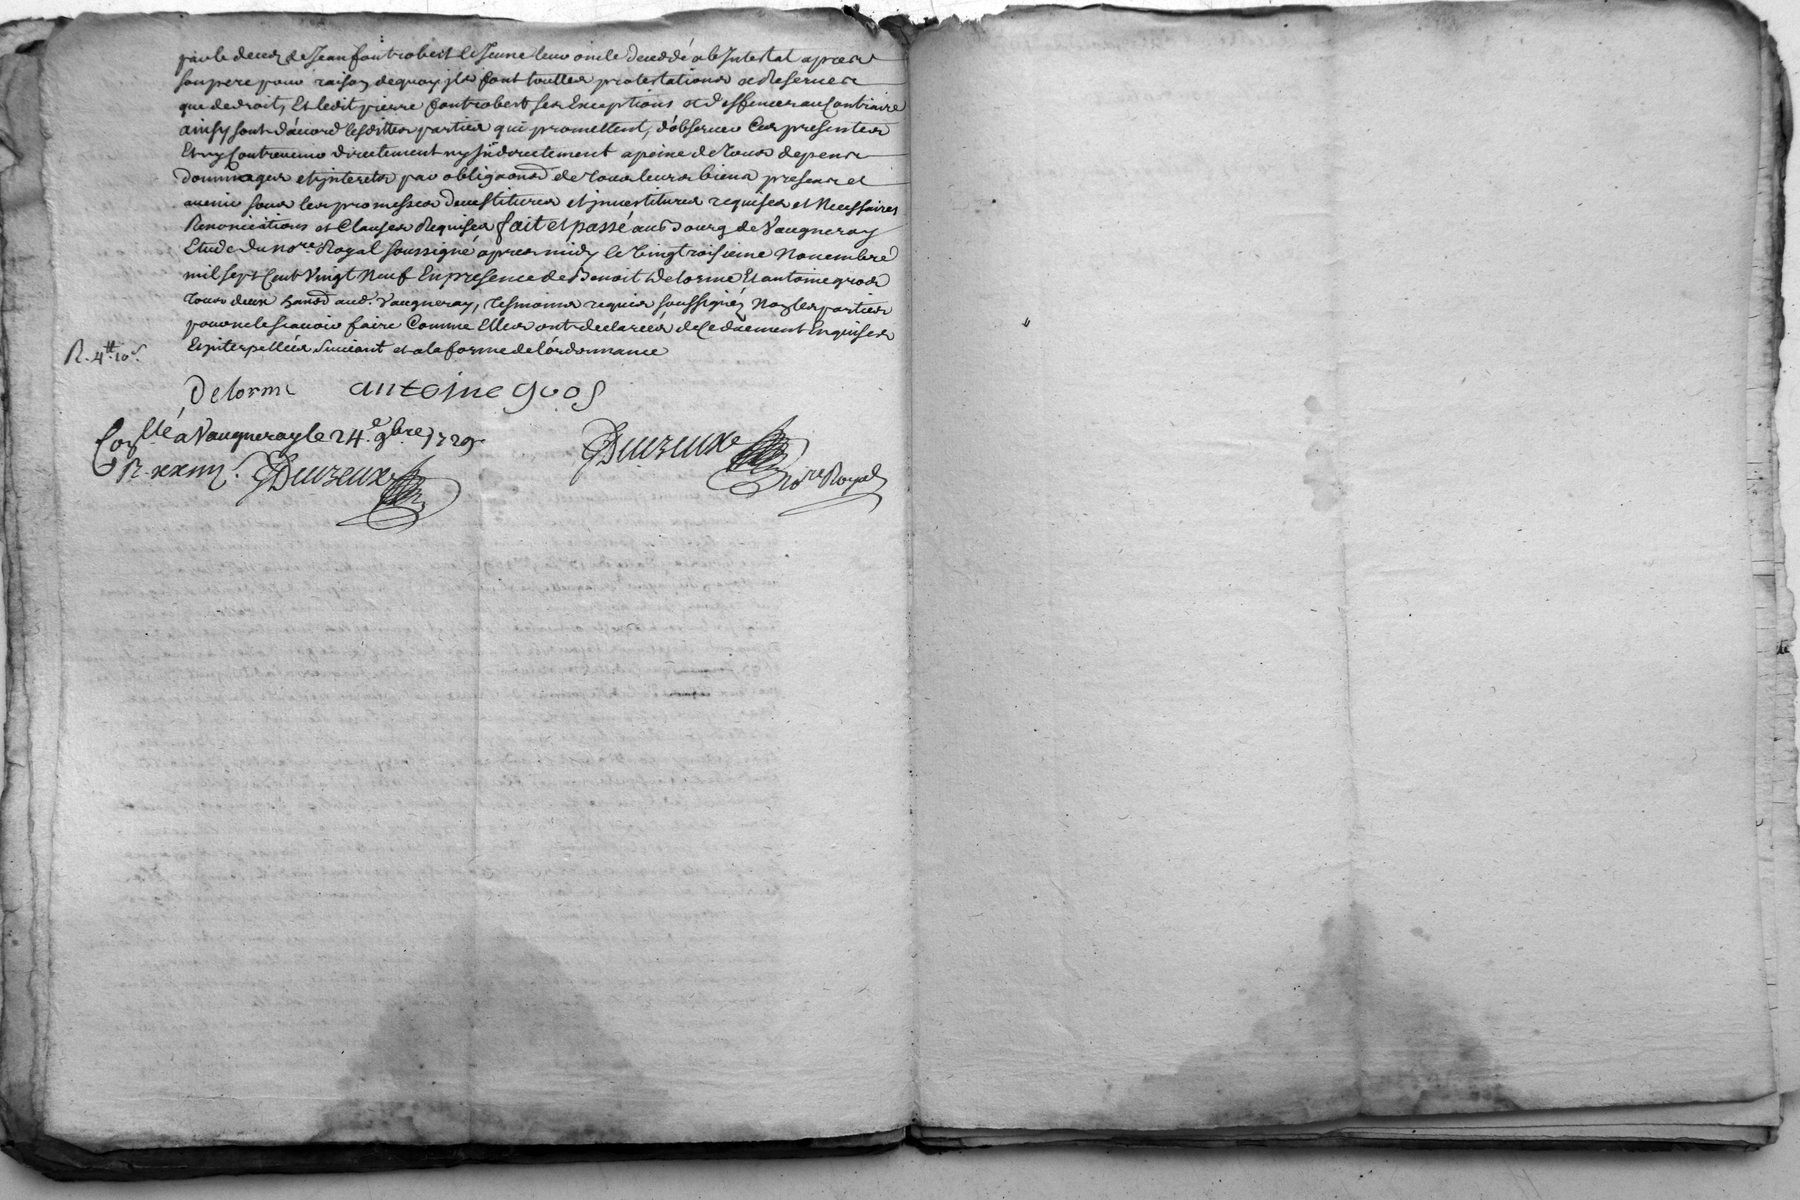 par le deces de Jean fontrobert le Jeune leur oncle decedé ab Intestat apres
son pere pour raison dequoy ils font touttes protestations et Reserves
que de droit, Et ledit pierre fontrobert ses Exceptions et deffences au Contraire
ainsy sont d'acord lesdittes parties qui promettent, d'observer Ces presentes
Et ny Contrevenir directement ny Indirectement a peine de tous depens
dommages et interets par obligaons de tous leurs biens presens et
avenir sous les promesses devestitures et investitures requises et Necessaires
Renonciations et Clauses Requises fait et passé au Bourg de Vaugneray
Etude du nore Royal soussigné apres midy le Vingtroisieme Novembre
mil sept Cent Vingt Neuf En presence de Benoit Delorme Et antoine gros
tous deux habns aud. Vaugneray, tesmoins requis soussignés Non les parties
pour ne le scavoir faire Comme Elles ont declarées, de Ce duement Enquises
Et interpellées Suivant et a la forme de l'ordonnance
R. 4tt 10s
Delorme antoine gros
Conllé a Vaugneray le 24e 9bre 1729
R. xxiiij s.
Nore Royal